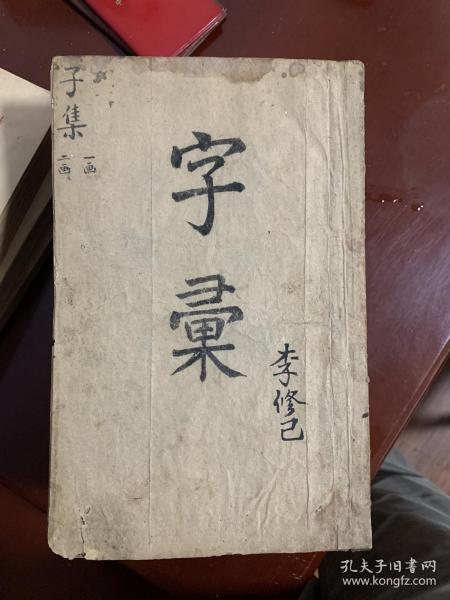 子集
一画
二画
字彙
李修己
孔夫子旧书网
www.kongfz.com